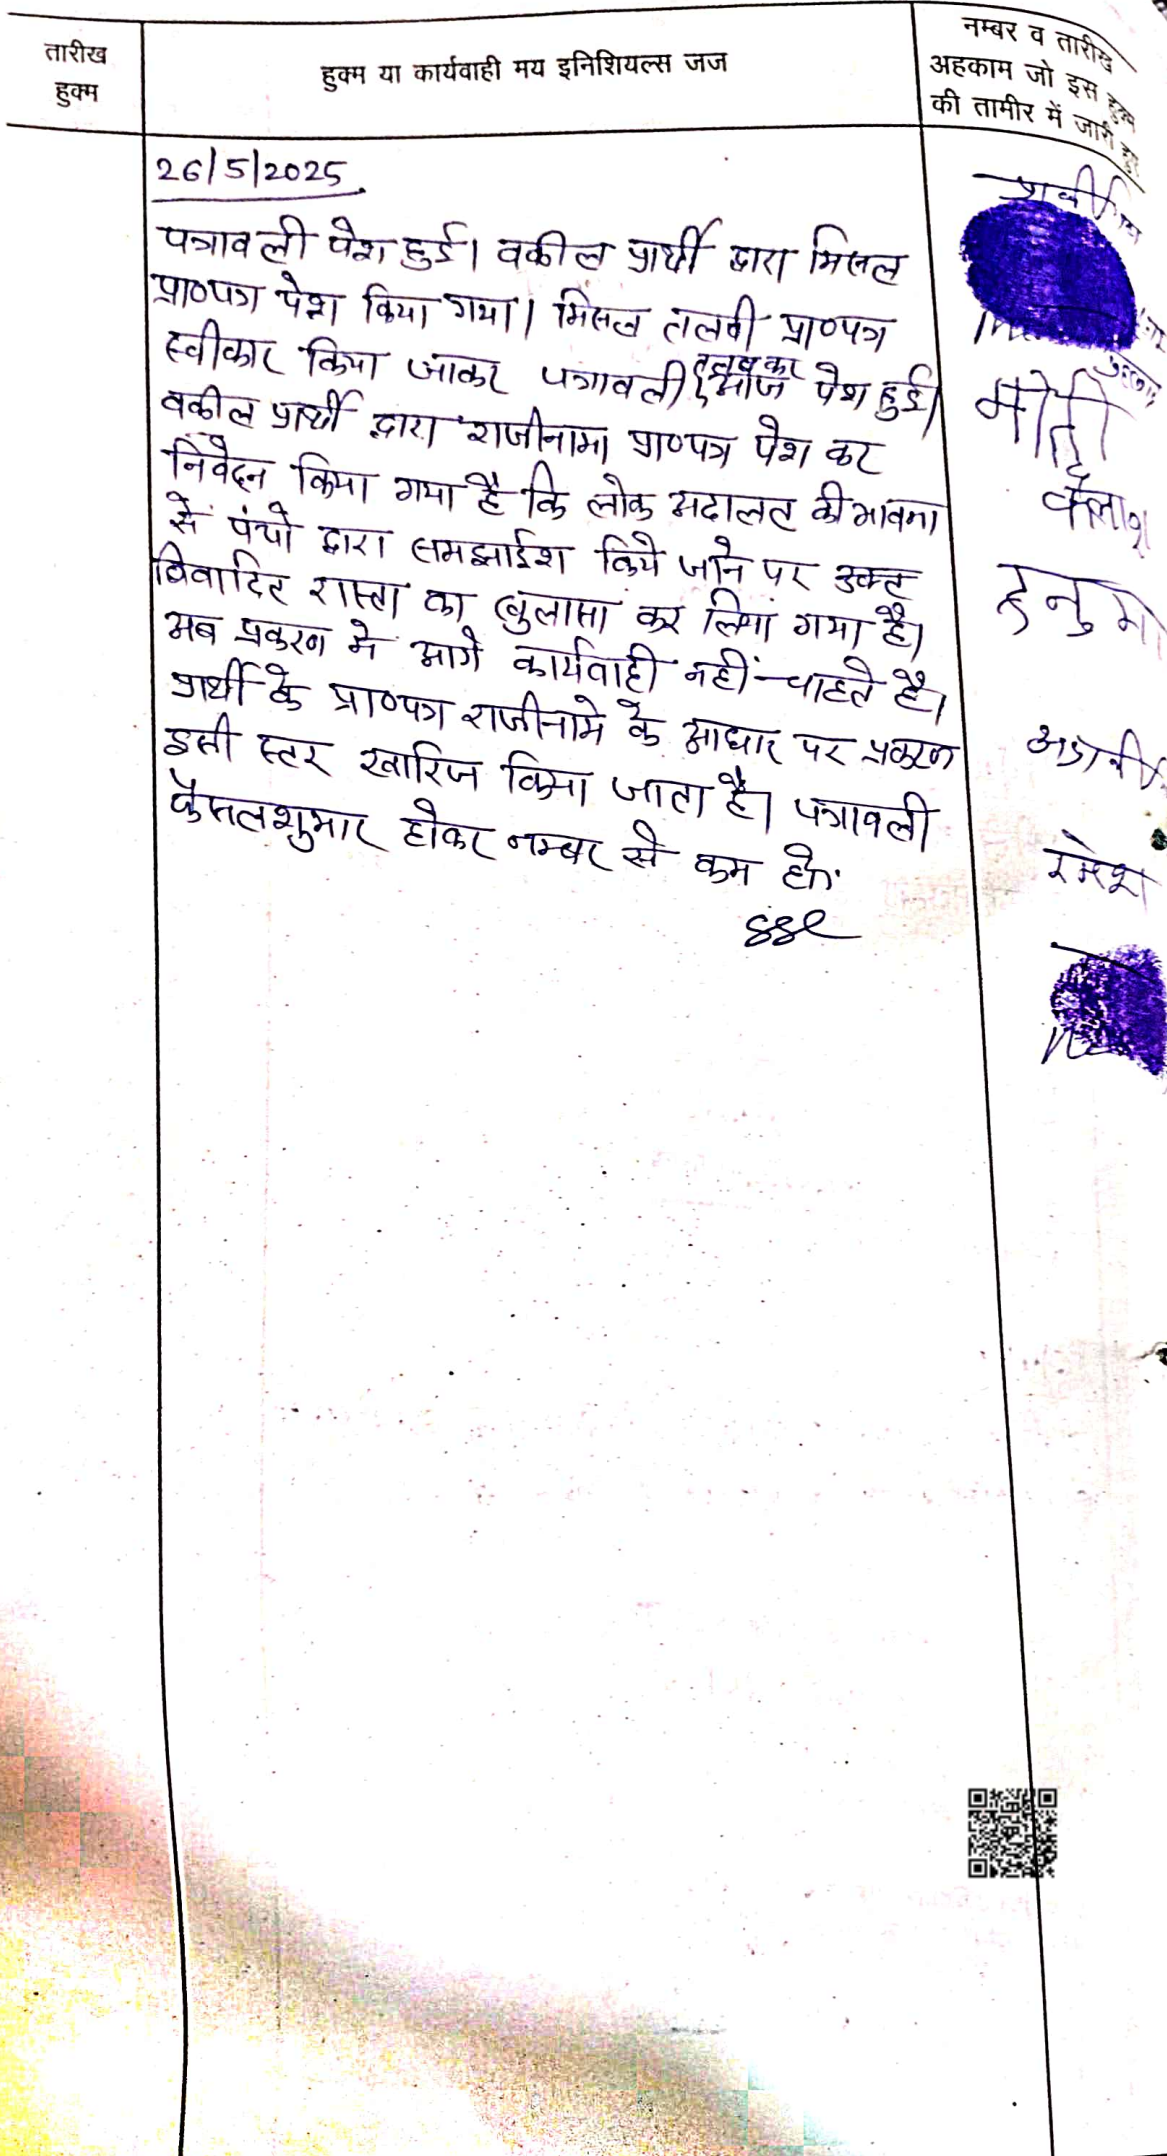 तारीख
हुक्म
हुक्म या कार्यवाही मय इनिशियल्स जज
नम्बर व तारीख
अहकाम जो इस हुक्म
की तामीर में जारी हुए
26/5/2025
पत्रावली पेश हुई। वकील प्रार्थी द्वारा मिसल
प्रा०पत्र पेश किया गया। मिसल तलबी प्रा०पत्र
स्वीकार किया जाकर पत्रावली तलब कर आज पेश हुई।
वकील प्रार्थी द्वारा राजीनामा प्रा०पत्र पेश कर
निवेदन किया गया है कि लोक अदालत की भावना
से पंचो द्वारा समझाईश किये जाने पर उक्त
विवादित रास्ता का खुलासा कर लिया गया है।
अब प्रकरण मे आगे कार्यवाही नहीं चाहते है।
प्रार्थी के प्रा०पत्र राजीनामे के आधार पर प्रकरण
इसी स्तर खारिज किया जाता है। पत्रावली
फैसलशुमार होकर नम्बर से कम हो।
कैलाश
रमेश